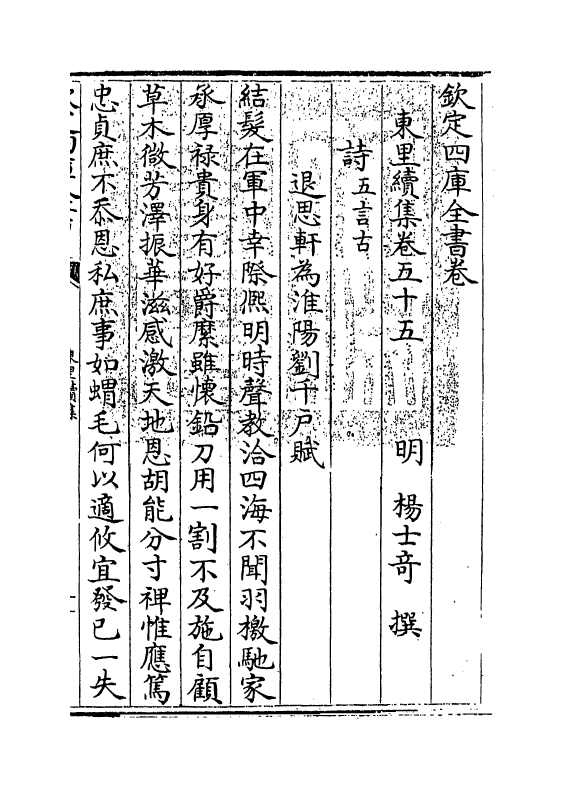 欽定四庫全書卷
東里續集卷五十五　明　楊士奇　撰
詩五言古
退思軒為淮陽劉千戶賦
結髮在軍中幸際熈明時聲教洽四海不聞羽檄馳家
承厚禄貴身有好爵縻雖懷鉛刀用一割不及施自顧
草木微芳澤振華滋感激天地恩胡能分寸裨惟應篤
忠貞庶不忝恩私庶事如蝟毛何以適攸宜發已一失
東里續集